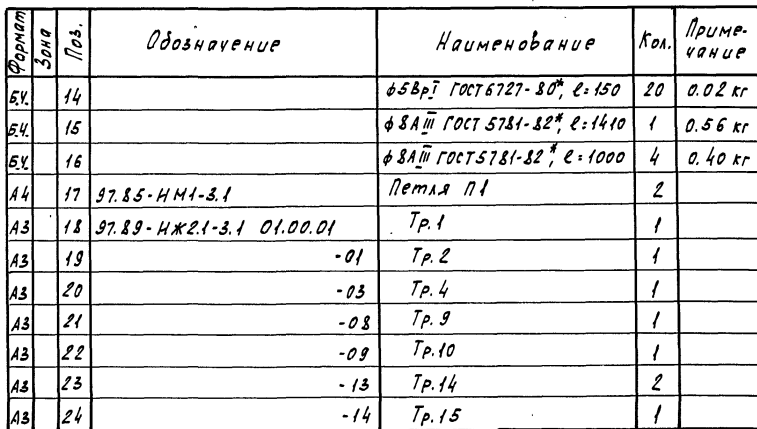 Формат Зона Поз. Обозначение Наименование Кол. Приме-
чание
Б.Ч. 14 ϕ5ВрI ГОСТ6727-80*, ℓ=150 20 0.02 кг
Б.Ч. 15 ϕ8АIII ГОСТ 5781-82*, ℓ=1410 1 0.56 кг
Б.Ч. 16 ϕ8АIII ГОСТ5781-82*, ℓ=1000 4 0.40 кг
А4 17 97.85-НМ1-3.1 Петля П1 2
А3 18 97.89-НЖ2.1-3.1 01.00.01 Тр.1 1
А3 19 -01 Тр.2 1
А3 20 -03 Тр.4 1
А3 21 -08 Тр.9 1
А3 22 -09 Тр.10 1
А3 23 -13 Тр.14 2
А3 24 -14 Тр.15 1